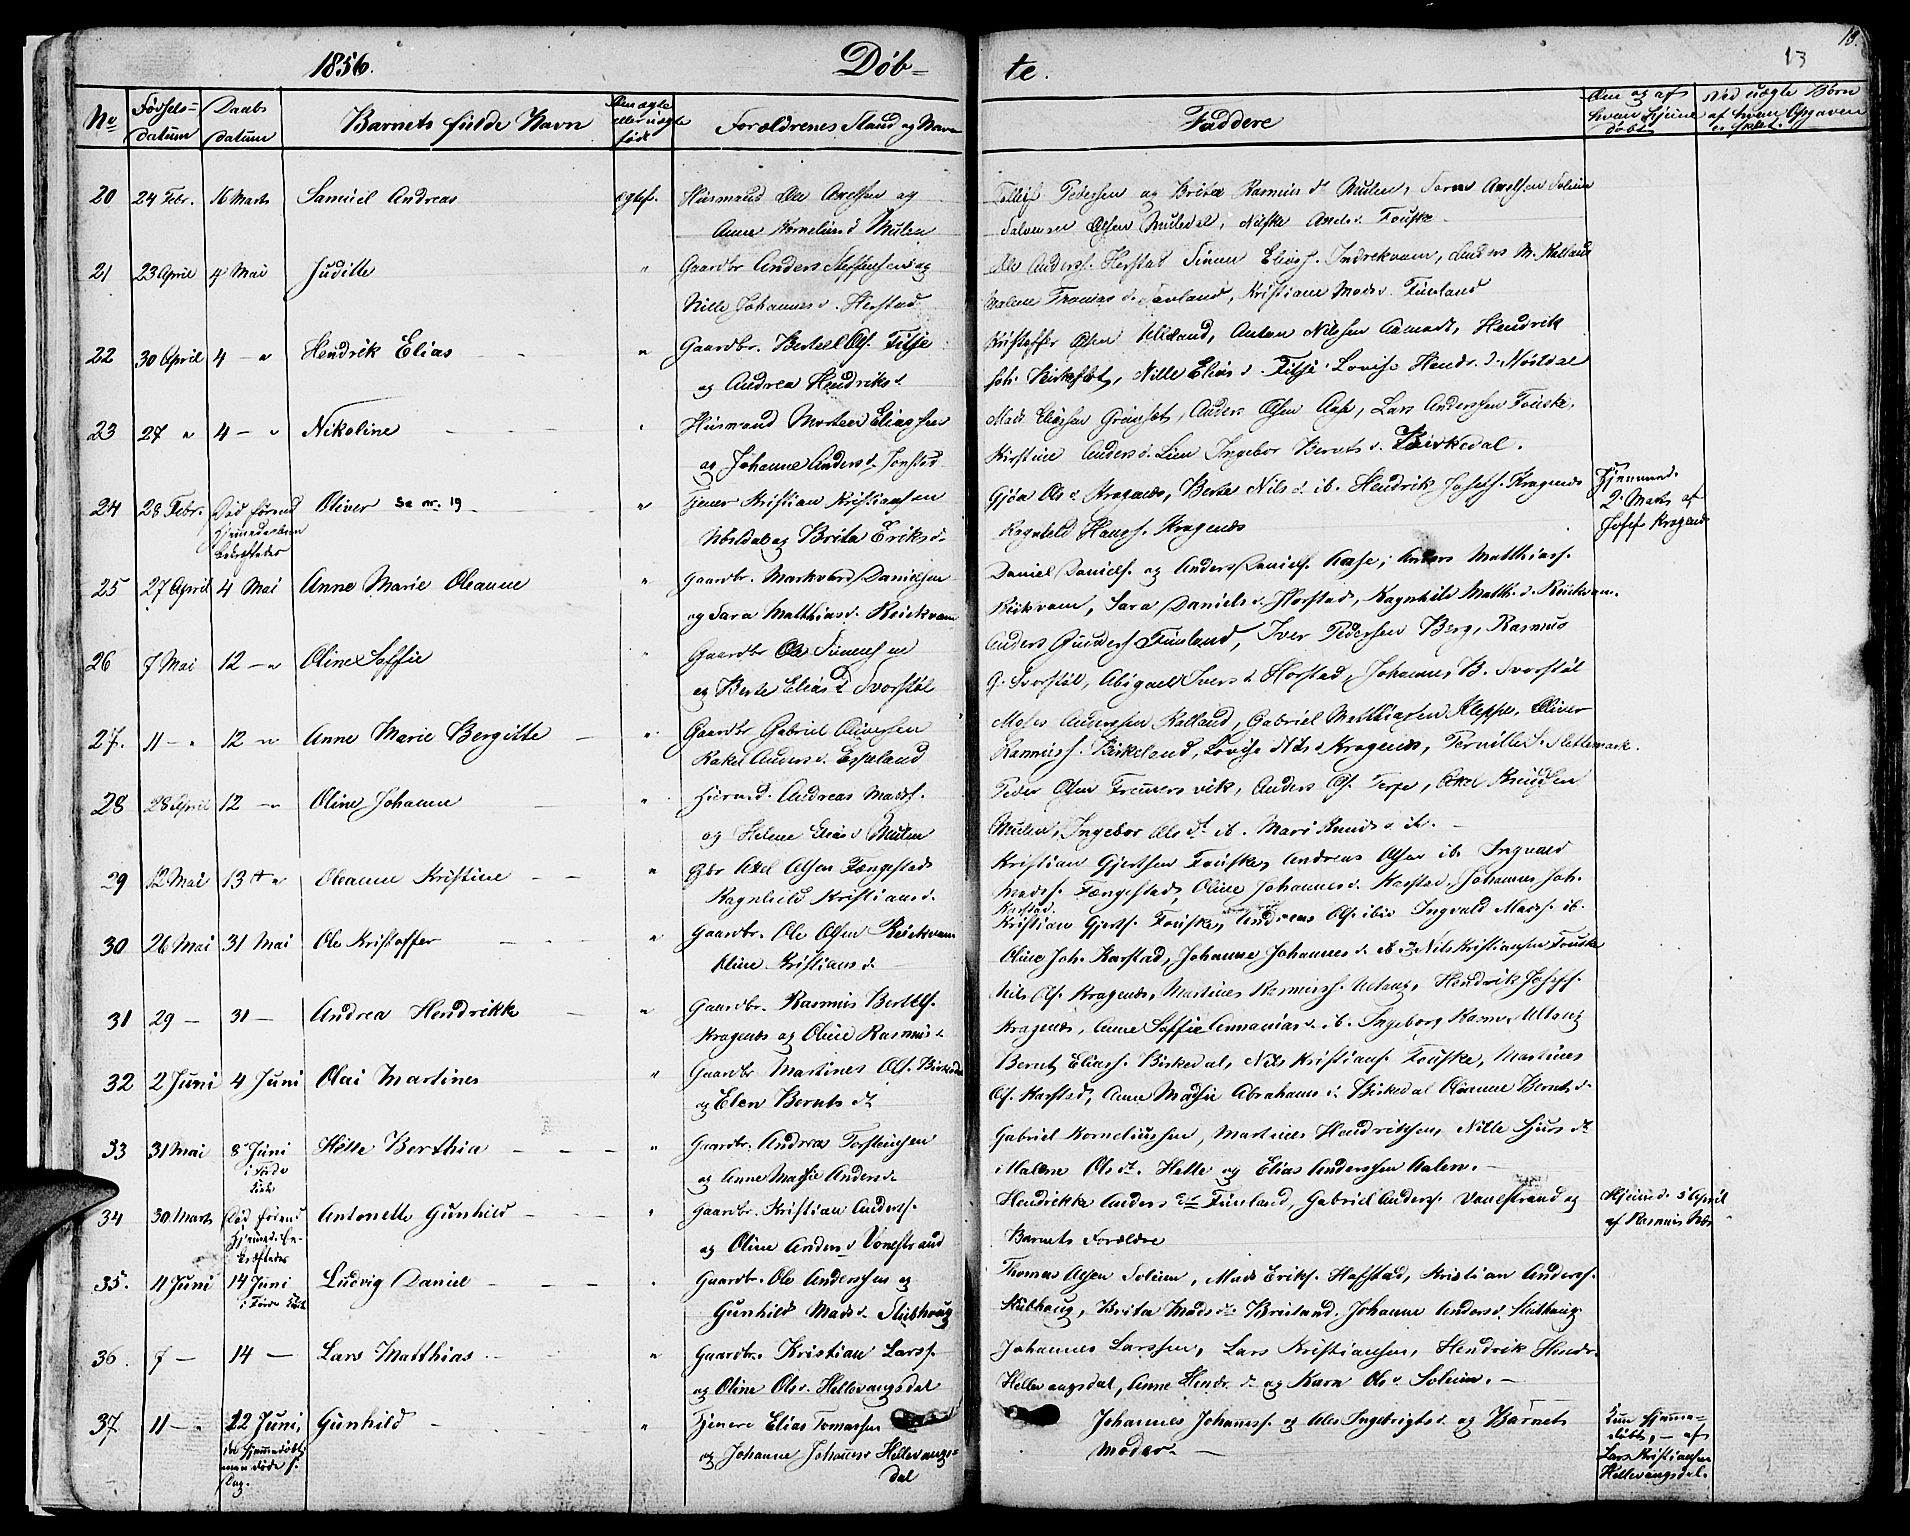 1856.
Døb-
te.
13
13.
No
Fødsels-
datum
Daabs
datum
Barnets fulde Navn
Om ægte
eller uægte
født
Forældrenes Stand og Navn
Faddere
Om og af
hvem hjeme
døbt
Ved uægte Børn
af hvem Opgaven
er skeet.
20 24 Febr. 16 Marts Samuel Andreas ægtef. Husmand Ole Axelsen og
Anne Kornelius d Mulen
Pedersen og Brita Rasmus d Mulen, Axelsen Solem
Olsen Muledal, Anders d. Fouske
21 23 April 4 Mai Juditte " Gaardbr Anders Steffensen og
Nille Johannes d. Horstad
Ole Anders. Horstad Simon Elias. Indrekvam, Anders M. Kalland
Thomas d. Furland, Kristiane Mads d. Funland
22 30 April 4 - " Hendrik Elias " Gaardbr. Berteel Ols. Fitje
og Andrea Hendriks d
Kristoffer Olsen Ulland, Anton Nilsen Aamodt, Hendrik
Joh. Birkeflot, Nille Elias d. Fitje Lovise Hendr. d. Nøstdal
23 27 " 4 - " Nikoline Husmand Morten Eliassen
og Johanne Anders d. Jonstad
Mads Eliassen Grimset, Anders Olsen Aase, Lars Anderssen Fouske,
Kirstine Anders d. Lien Ingebor Bernts d. Birkedal.
24 28 Febr. Død førend
hjemmedaaben
bekræftedes
Oliver se nr. 19 " Tjener Kristian Kristiansen
Nøsdal og Brita Eriks d.
Gjøa Ols d Kragenæs, Berte Nils d. ib. Hendrik Josefs. Kragenæs
Ragnhild Hans. Kragenæs
Hjemmed.
2 Marts af
Josef Kragenæs
25 27 April 4 Mai Anne Marie Oleanne " Gaardbr. Markvard Danielsen
og Sara Matthias d. Reiekvam
Daniel Daniels. og Anders Daniels. Aase, Anders Matthias.
Reiekvam, Sara Daniels d. Horstad, Ragnhild Matth. d. Reiekvam.
26 7 Mai 12 - " Oline Soffie " Gaardbr Ole Simensen
og Berte Elias d Svorstøl
Anders Gunders. Funland, Iver Pedersen Berg, Rasmus
G. Svorstøl, Abigael Ivers d Horstad, Johanne B. Svorstøl
27. 11 - " 12 - " Anne Marie Bergitte " Gaardbr Gabriel Oliversen
Rakel Anders d. Espeland
Moses Anderssen Kalland, Gabriel Matthiassen Kleppe, Oliver
Rasmus. Birkeland, Lovise Nils d Kragenæs, Pernille d. Slettemark.
28 28 April 12 - " Oline Johanne " Hjemd. Andreas Mads.
og Helene Elias d Mulen
Peder Olsen Svik, Anders Ols. Terpe, Knudsen
Mulen, Ingebor Ols dt ib. Mari Knuds d ib.
29 12 Mai 13 " Oleanne Kristine " Gbr Axel Olsen Fængestad
Ragnhild Kristians d.
Kristian Gjertsen Fouske, Andreas Olsen ib. Ingvald
Mads. Fængestad, Oline Johannes d. Karstad, Johannes Joh.
Karstad.
30 26 Mai 31 Mai Ole Kristoffer " Gaardbr. Ole Olsen Reiekvam
Oline Kristians d.
Kristian Gjerts. Fouske, Andreas Ols. ibid Ingvald Mads. ib.
Oline Joh. Karstad, Johanne Johannes d. ib. Nils Kristiansen Fouske
31 29 - 31 - Andrea Hendrikke " Gaardbr. Rasmus Bertels.
Kragenæs og Oline Rasmus d
Nils Ols. Kragenæs, Martines Rasmus. Utaug, Hendrik Josefs.
Kragenæs, Anne Soffie Annanias d. ib. Ingeborg Rasm. Utaug
32 2 Juni 4 Juni Olai Martines " Gaardbr Martines Ols. Birkedal
og Elen Bernts dt.
Bernt Elias. Birkedal, Nils Kristians. Fouske, Martines
Ols. Karstad, Anne Marie Abrahams d. Birkedal Oleanne Bernts d.
33 31 Mai 8 Juni
i Førde
Kirke
Helle Berthia " Gaardbr. Andreas Torsteinsen
og Anne Marie Anders d
Gabriel Korneliussen, Martines Hendriksen, Nille Sjurs dt
Malene Ols dt. Helle og Elias Anderssen Aalen.
34 30 Marts Død førend
hjemmed. be-
kræftedes
Antonette Gunhild " Gaardbr. Kristian Anders.
og Oline Anders d Vonestrand
Hendrikke Anders dt Funland, Gabriel Anders. Vonestrand og
Barnets Forældre
Hjemd. 5 April
af Rasmus
35. 4 Juni 14 Juni
i Førde Kirke
Ludvig Daniel Gaardbr. Ole Anderssen og
Gunhild Mads d. Stubhoug
Thomas Olsen Solem, Mads Eriks. Hafstad, Kristian Anders.
Stubhaug, Brita Mads d. Breiland Johanne Anders d. Stubhaug
36. 7 - 14 - Lars Matthias " Gaardbr. Kristian Lars.
og Oline Ols d. Hellevangsdal
Johannes Larssen, Lars Kristiansen, Hendrik Hendr.
Hellevangsdal, Anne Hendr. d. og Karn Ols d Solem.
37 11 - " 22 Juni,
da hjemmedøbt,
men døde s.
Dag.
Gunhild " Tjenere Elias Tomassen
og Johanne Johannes d Hellevangs-
dal
Johannes Johannes. og Ales Ingebrigts d. og Barnets
Moder.
Kun hjemme-
døbt, - af
Lars Kristiansen
Hellevangsdal.